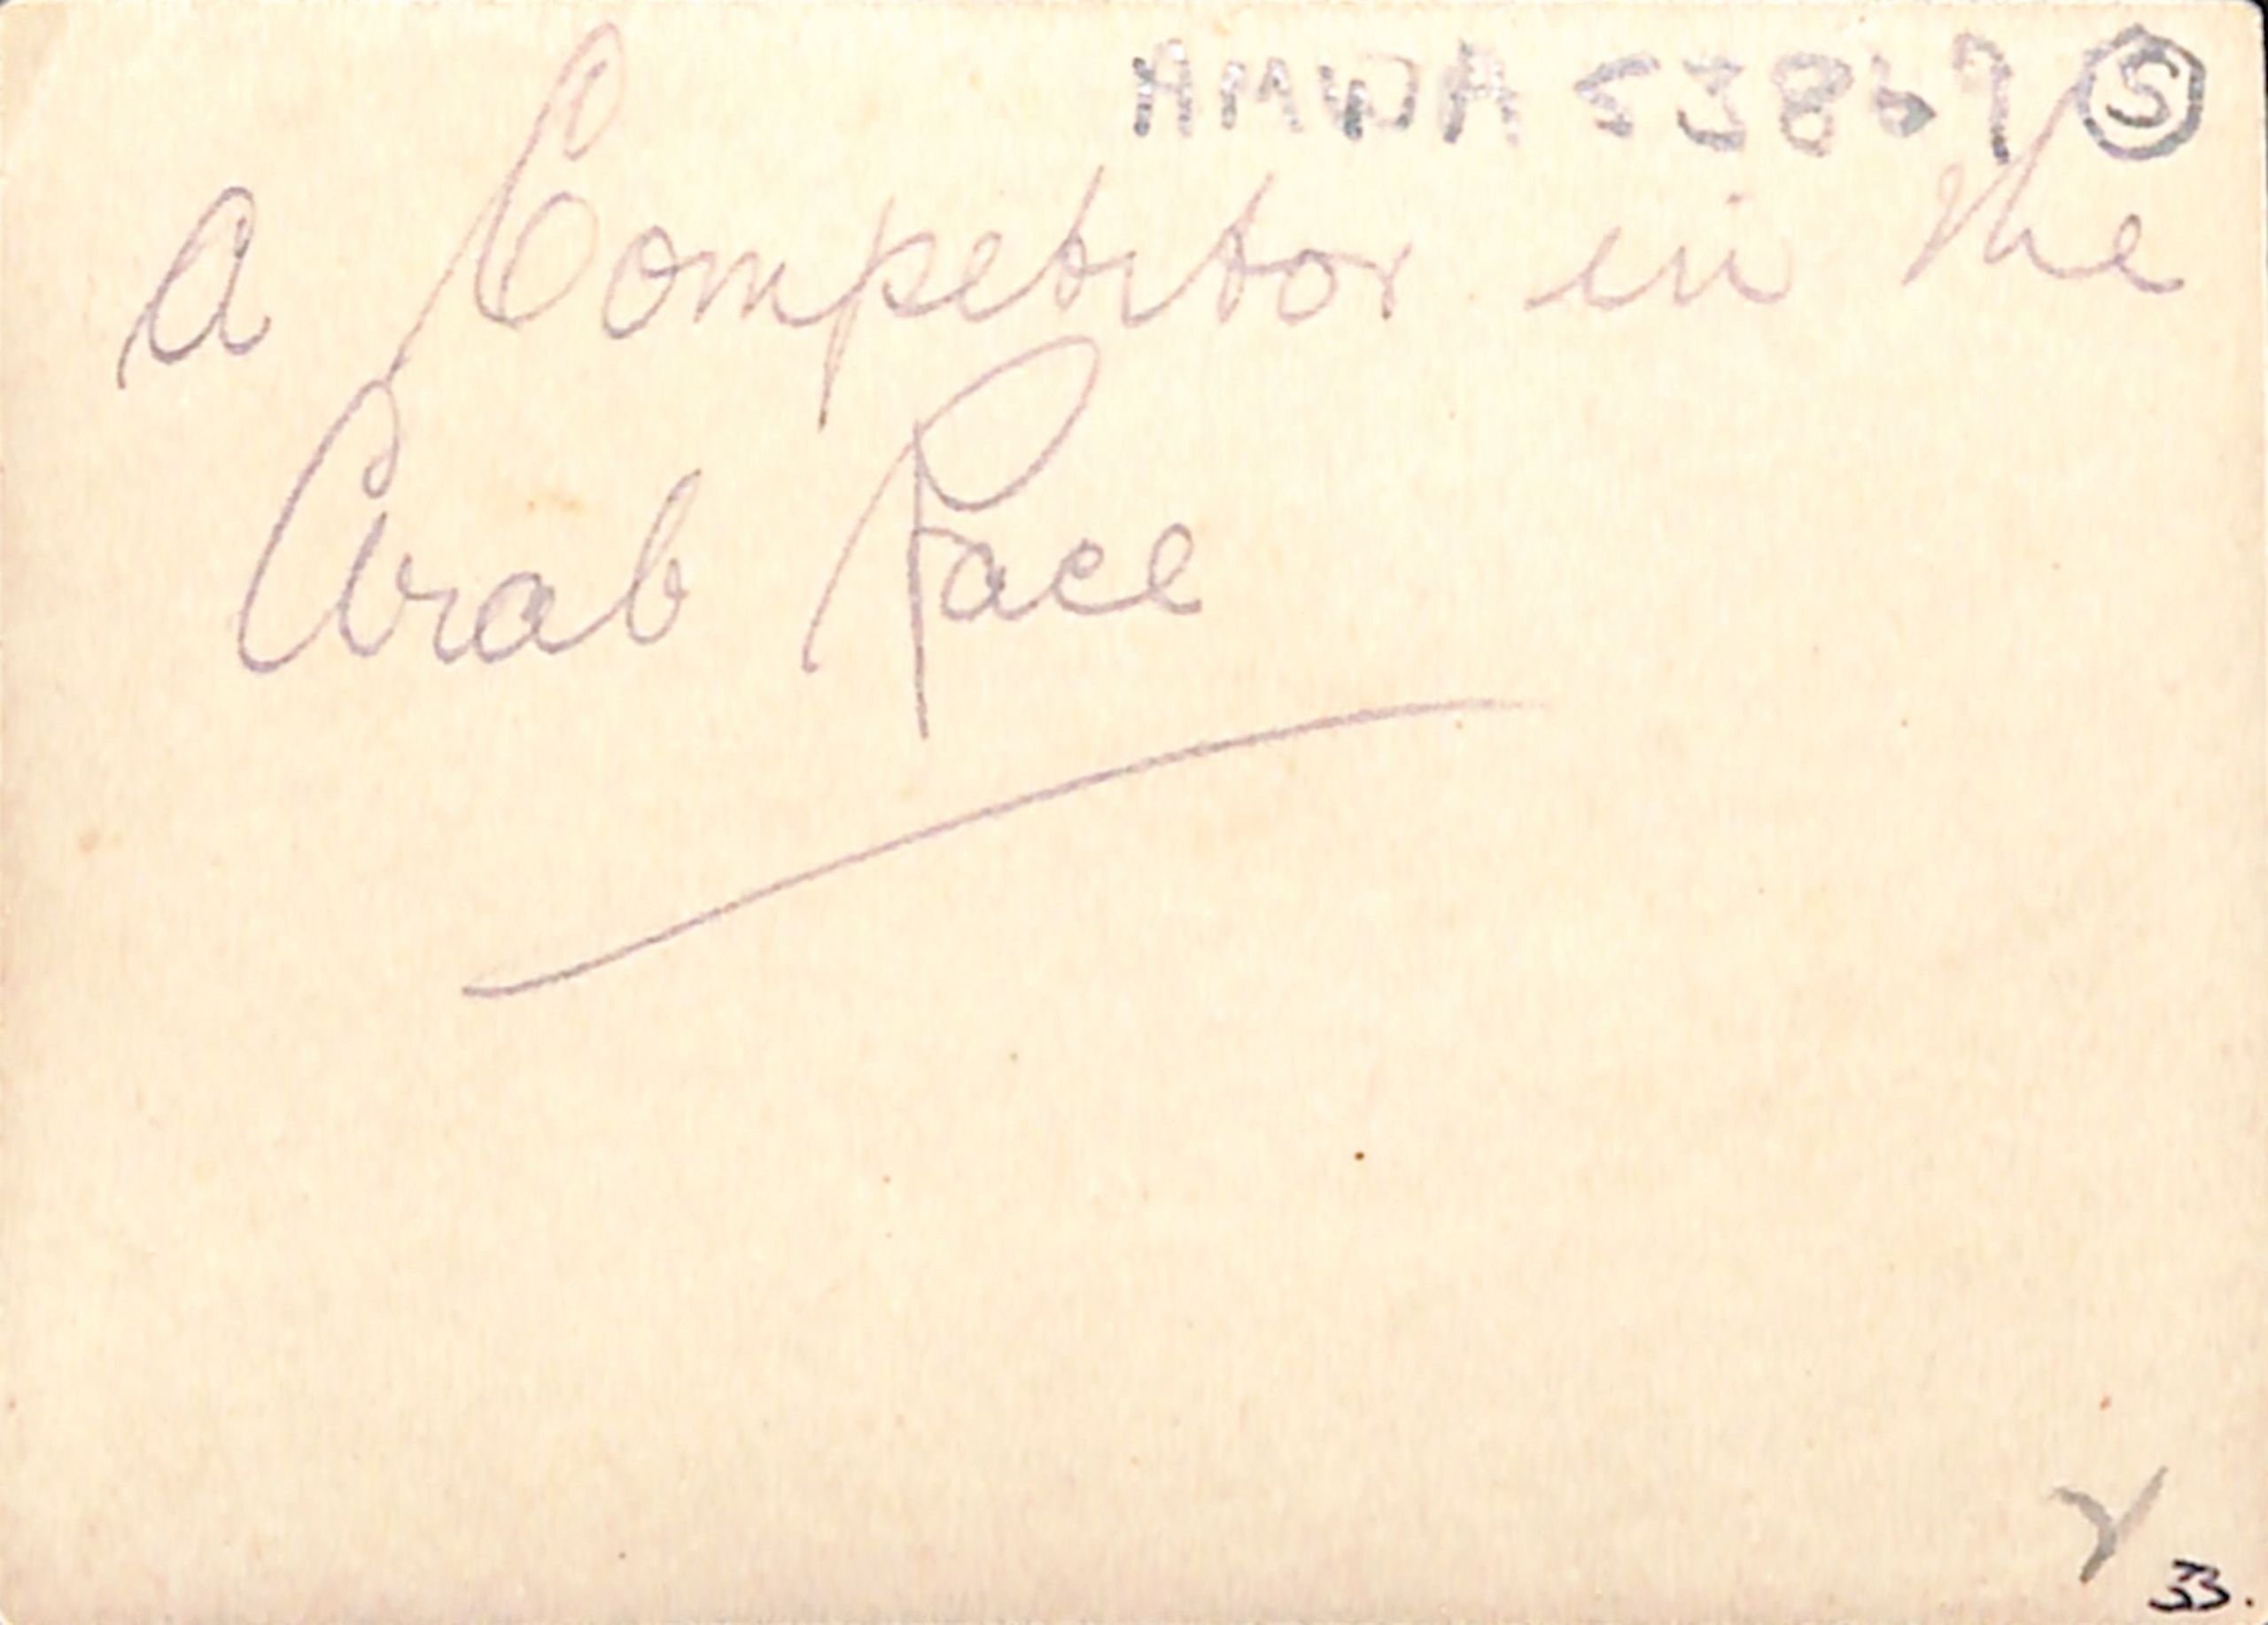 AMWA 53869 S
A Competitor in the
Arab Race
33.